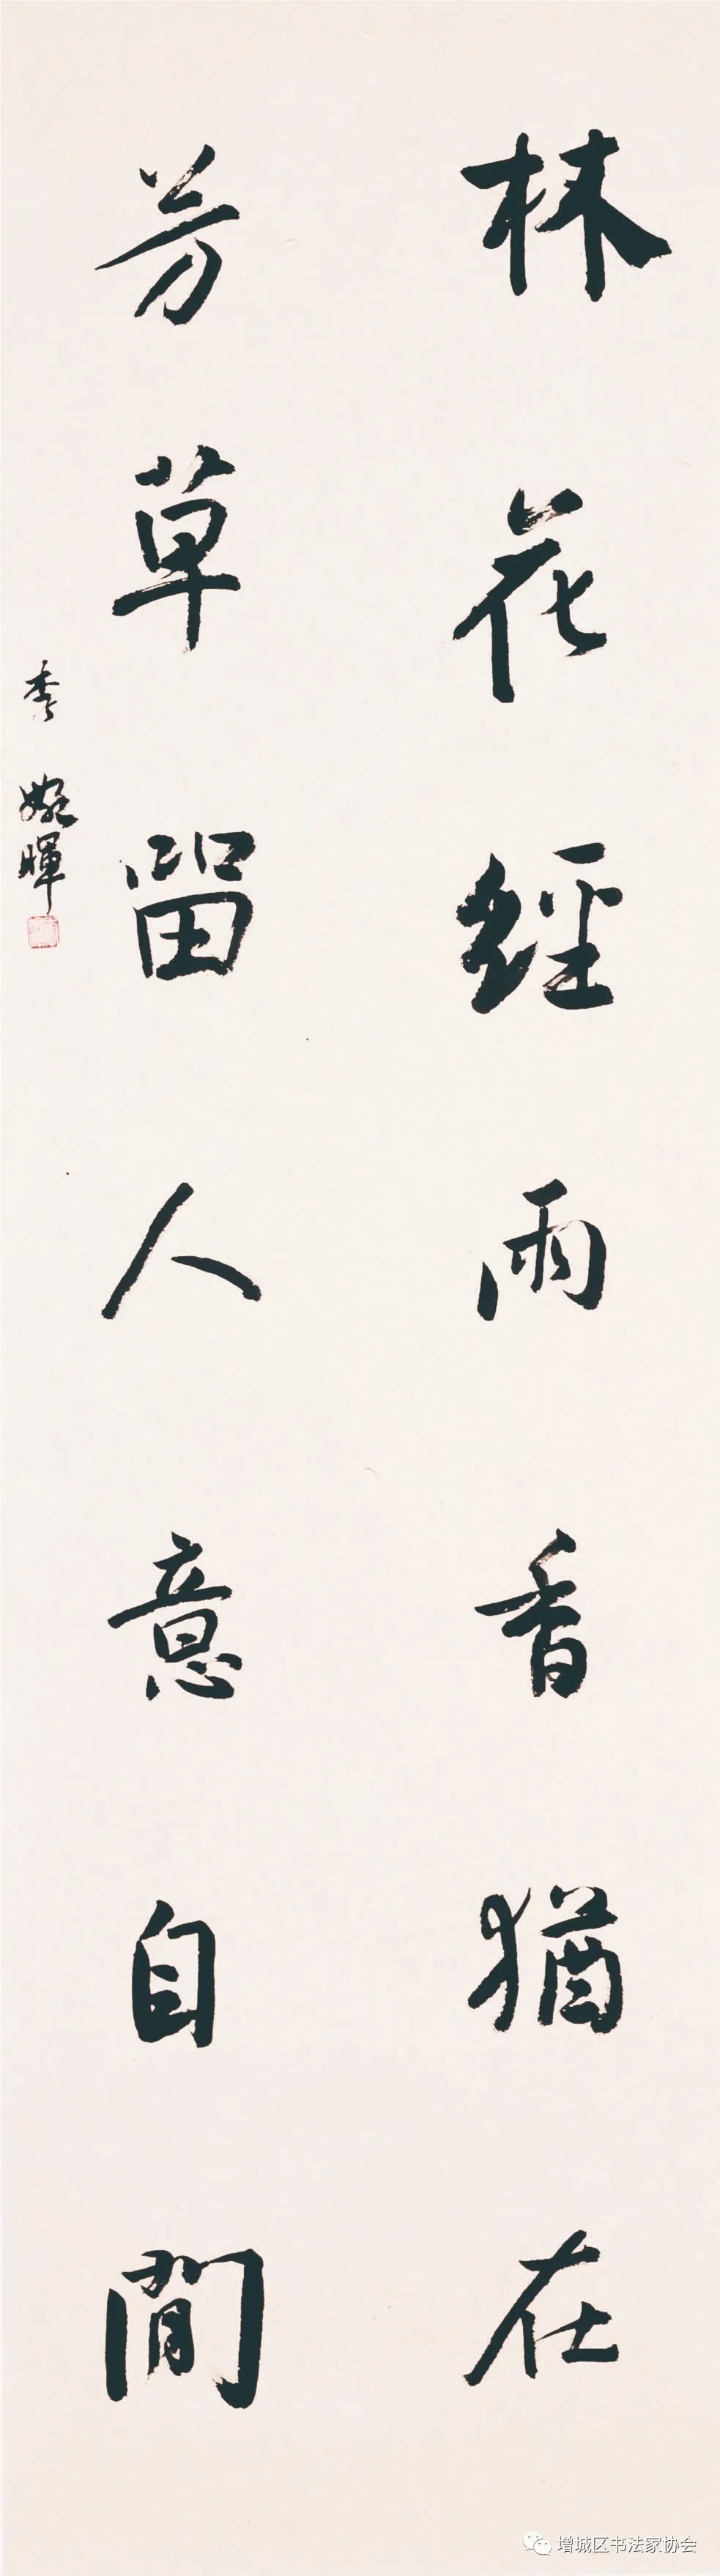 林花經雨香猶在
芳草留人意自閒
李婉暉
增城区书法家协会